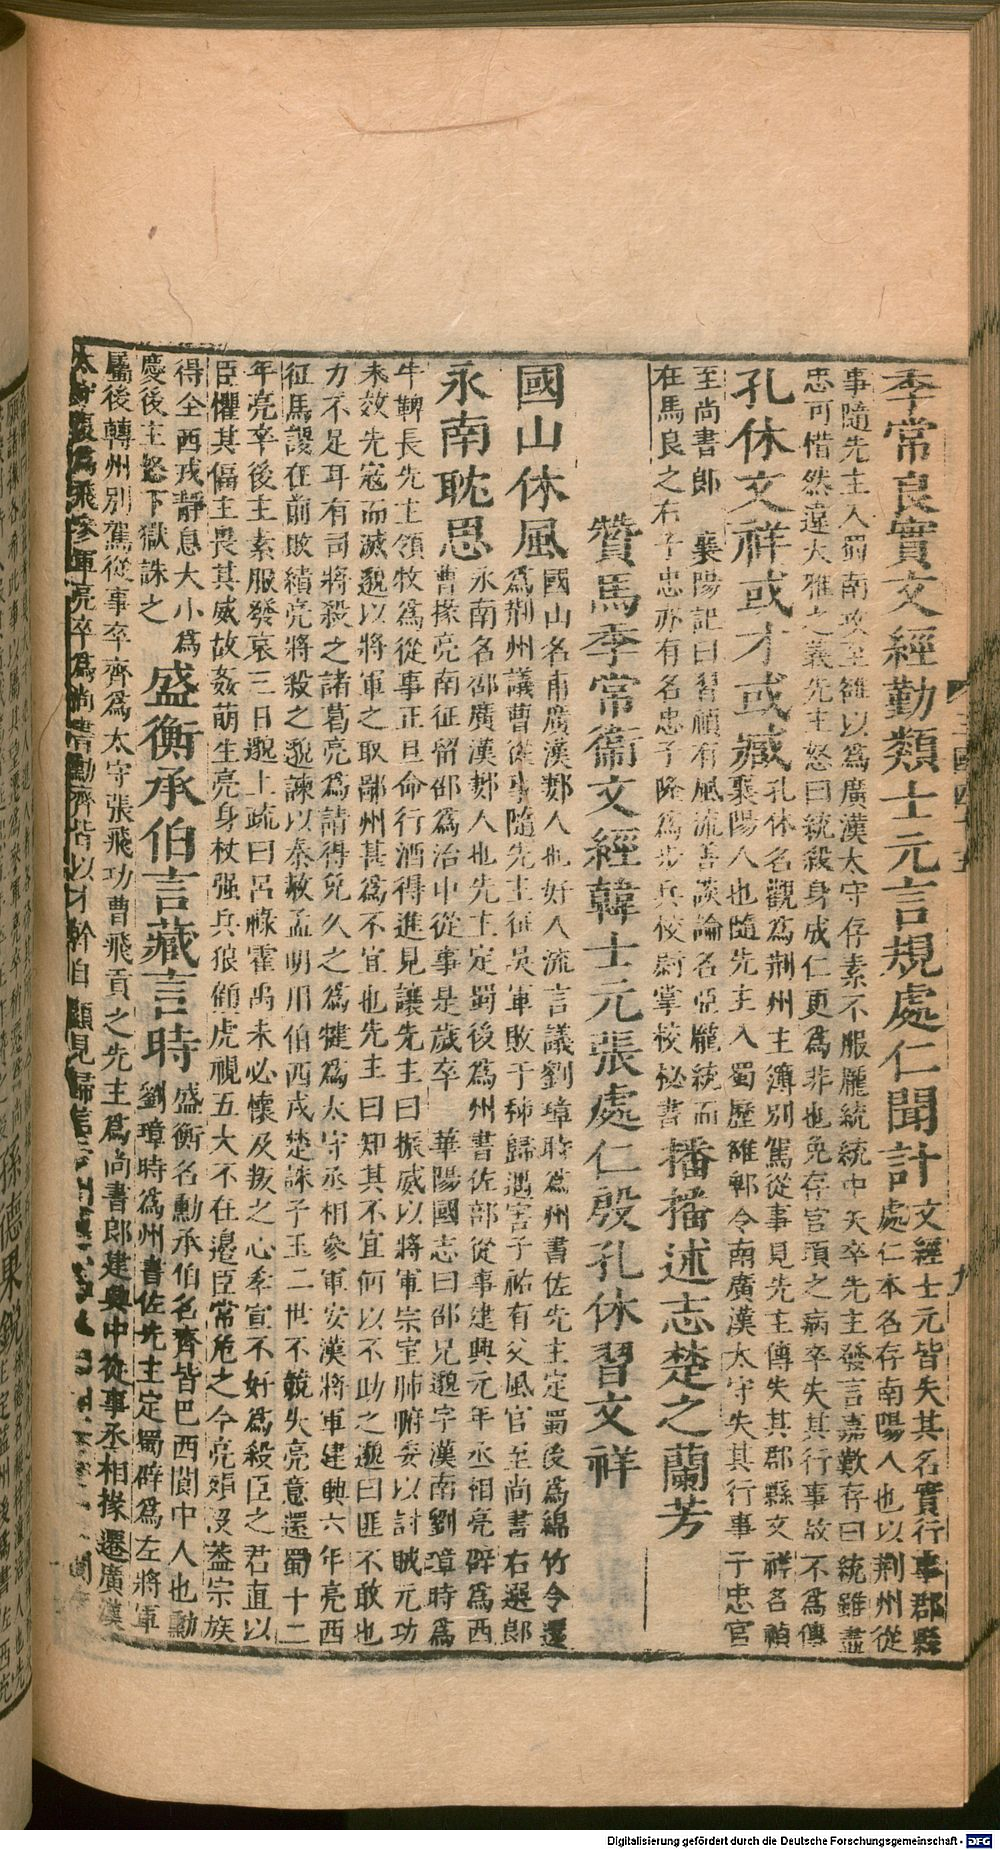 季常良實文經勤類士元言規處仁聞計文經士元皆失其名實行事郡縣
處仁本名存南陽人也以荊州從
事隨先主入蜀南攻至雒以爲廣漢太守存素不服龐統統中矢卒先主發言嘉歎存曰統雖盡
忠可惜然違大雅之義先主怒曰統殺身成仁更爲非也免存官頃之病卒失其行事故不爲傳
孔休文祥或才或臧孔休名觀爲荊州主簿別駕從事見先主傳失其郡縣文祥名禎
襄陽人也隨先主入蜀歷雒郫令南廣漢太守失其行事子忠官
至尚書郎 襄陽記曰習禎有風流善談論名亞龐統而
在馬良之右子忠亦有名忠子隆爲步兵校尉掌校秘書播播述志楚之蘭芳
贊馬季常衞文經韓士元張處仁殷孔休習文祥
國山休風國山名甫廣漢郪人也好人流言議劉璋時爲州書佐先主定蜀後爲綿竹令還
爲荊州議曹從事隨先主征吳軍敗于秭歸遇害子祐有父風官至尚書右選郎
永南耽思永南名邵廣漢郪人也先主定蜀後爲州書佐部從事建興元年丞相亮辟爲西
曹掾亮南征留邵爲治中從事是歲卒 華陽國志曰邵兄邈字漢南劉璋時爲
牛鞞長先主領牧爲從事正旦命行酒得進見讓先主曰振威以將軍宗室肺腑委以討賊元功
未效先寇而滅邈以將軍之取鄙州甚爲不宜也先主曰知其不宜何以不助之邈曰匪不敢也
力不足耳有司將殺之諸葛亮爲請得免久之爲犍爲太守丞相參軍安漢將軍建興六年亮西
征馬謖在前敗績亮將殺之邈諫以秦赦孟明用伯西戎楚誅子玉二世不競失亮意還蜀十二
年亮卒後主素服發哀三日邈上疏曰呂祿霍禹未必懷及叛之心孝宣不好爲殺臣之君直以
臣懼其偪主畏其威故姦萌生亮身杖强兵狼顧虎視五大不在邊臣常危之今亮殞沒葢宗族
得全西戎靜息大小爲
慶後主怒下獄誅之盛衡承伯言藏言時盛衡名勳承伯名齊皆巴西閬中人也勳
劉璋時爲州書佐先主定蜀辟爲左將軍
屬後轉州別駕從事卒齊爲太守張飛功曹飛貢之先主爲尚書郎建興中從事丞相掾遷廣漢
太守復爲飛參軍亮卒爲尚書勳齊皆以才幹自顯見歸
三國四十五
九
Digitalisierung gefördert durch die Deutsche Forschungsgemeinschaft - DFG